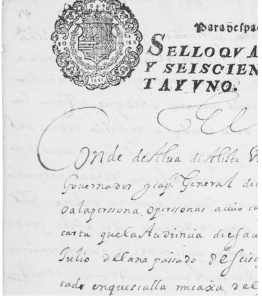 Para despa
SELLO QVA
Y SEISCIEN
TA Y VNO.
El
Conde de Alua de Aliste V
Gouernador y cap. General de
o a la persona, o personas a cuio ca
carta que la Audiencia de
Julio del ano pasado de seisc
tado en que se alla mi caxa del